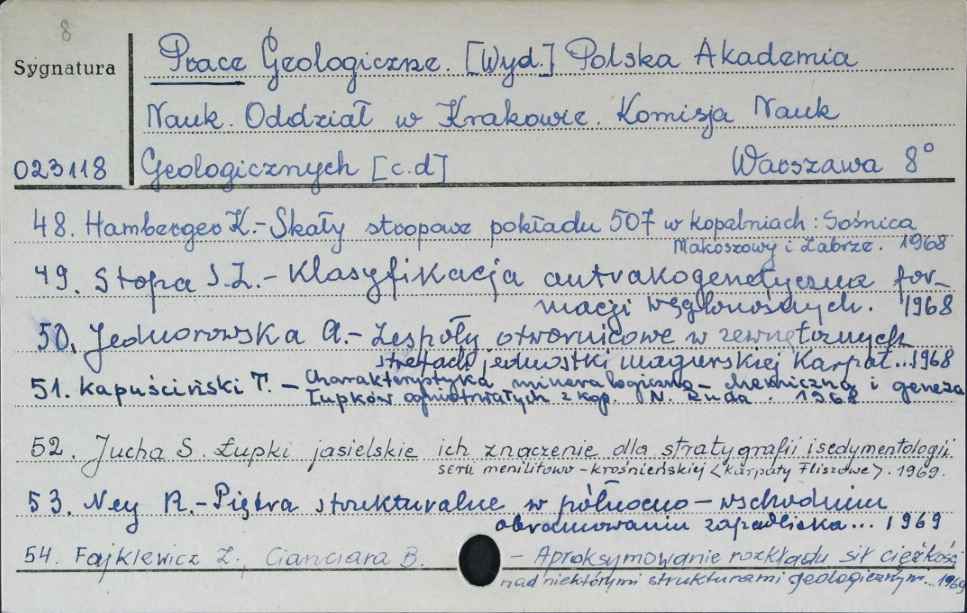 8
Sygnatura
Prace Geologiczne. [Wyd.] Polska Akademia
Nauk. Oddział w Krakowie. Komisja Nauk
023118 Geologicznych [c.d] Warszawa 8°
48. Hamberger K. - Skały stropowe pokładu 507 w kopalniach: Sośnica
Makoszowy i Zabrze. 1968
49. Stopa S.Z. - Klasyfikacja antrakogenetyczna for-
macji węglonośnych. 1968
50. Jednorowska A. - Zespoły otwornicowe w zewnętrznych
strefach jednostki magurskiej Karpat... 1968
51. Kapuściński T. - Charakterystyka mineralogiczno-chemiczna i geneza
Łupków ogniotrwałych z kop. N. Ruda. 1968
52. Jucha S. Łupki jasielskie ich znaczenie dla stratygrafii i sedymentologii
serii menilitowo-krośnieńskiej <Karpaty Fliszowe>. 1969.
53. Ney R. - Piętra strukturalne w północno-wschodnim
obramowaniu zapadliska... 1969
54. Fajklewicz Z., Cianciara B. - Aproksymowanie rozkładu sił ciężkości
nad niektórymi strukturami geologicznym... 1969